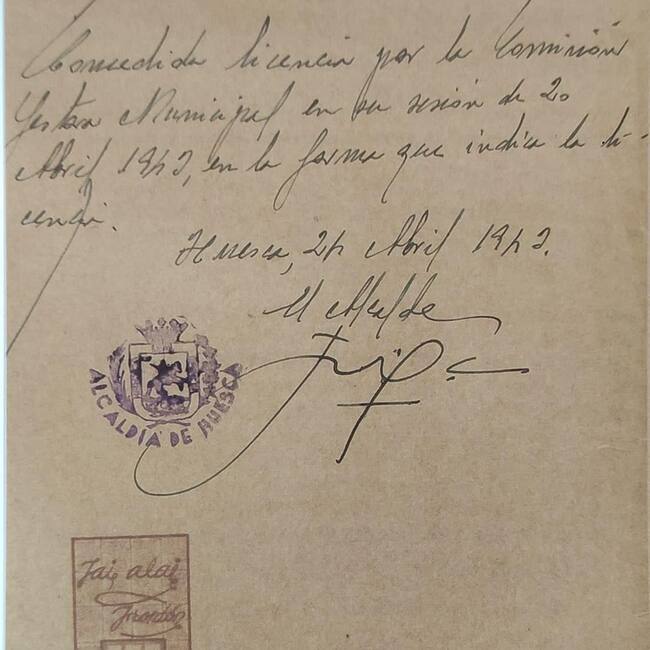 Concedida licencia por la Comisión
Gestora Municipal en su sesión de 20
Abril 1942, en la forma que indica la li-
cencia.
Huesca, 24 Abril 1942.
El Alcalde
ALCALDÍA DE HUESCA
Jai alai
Frontón